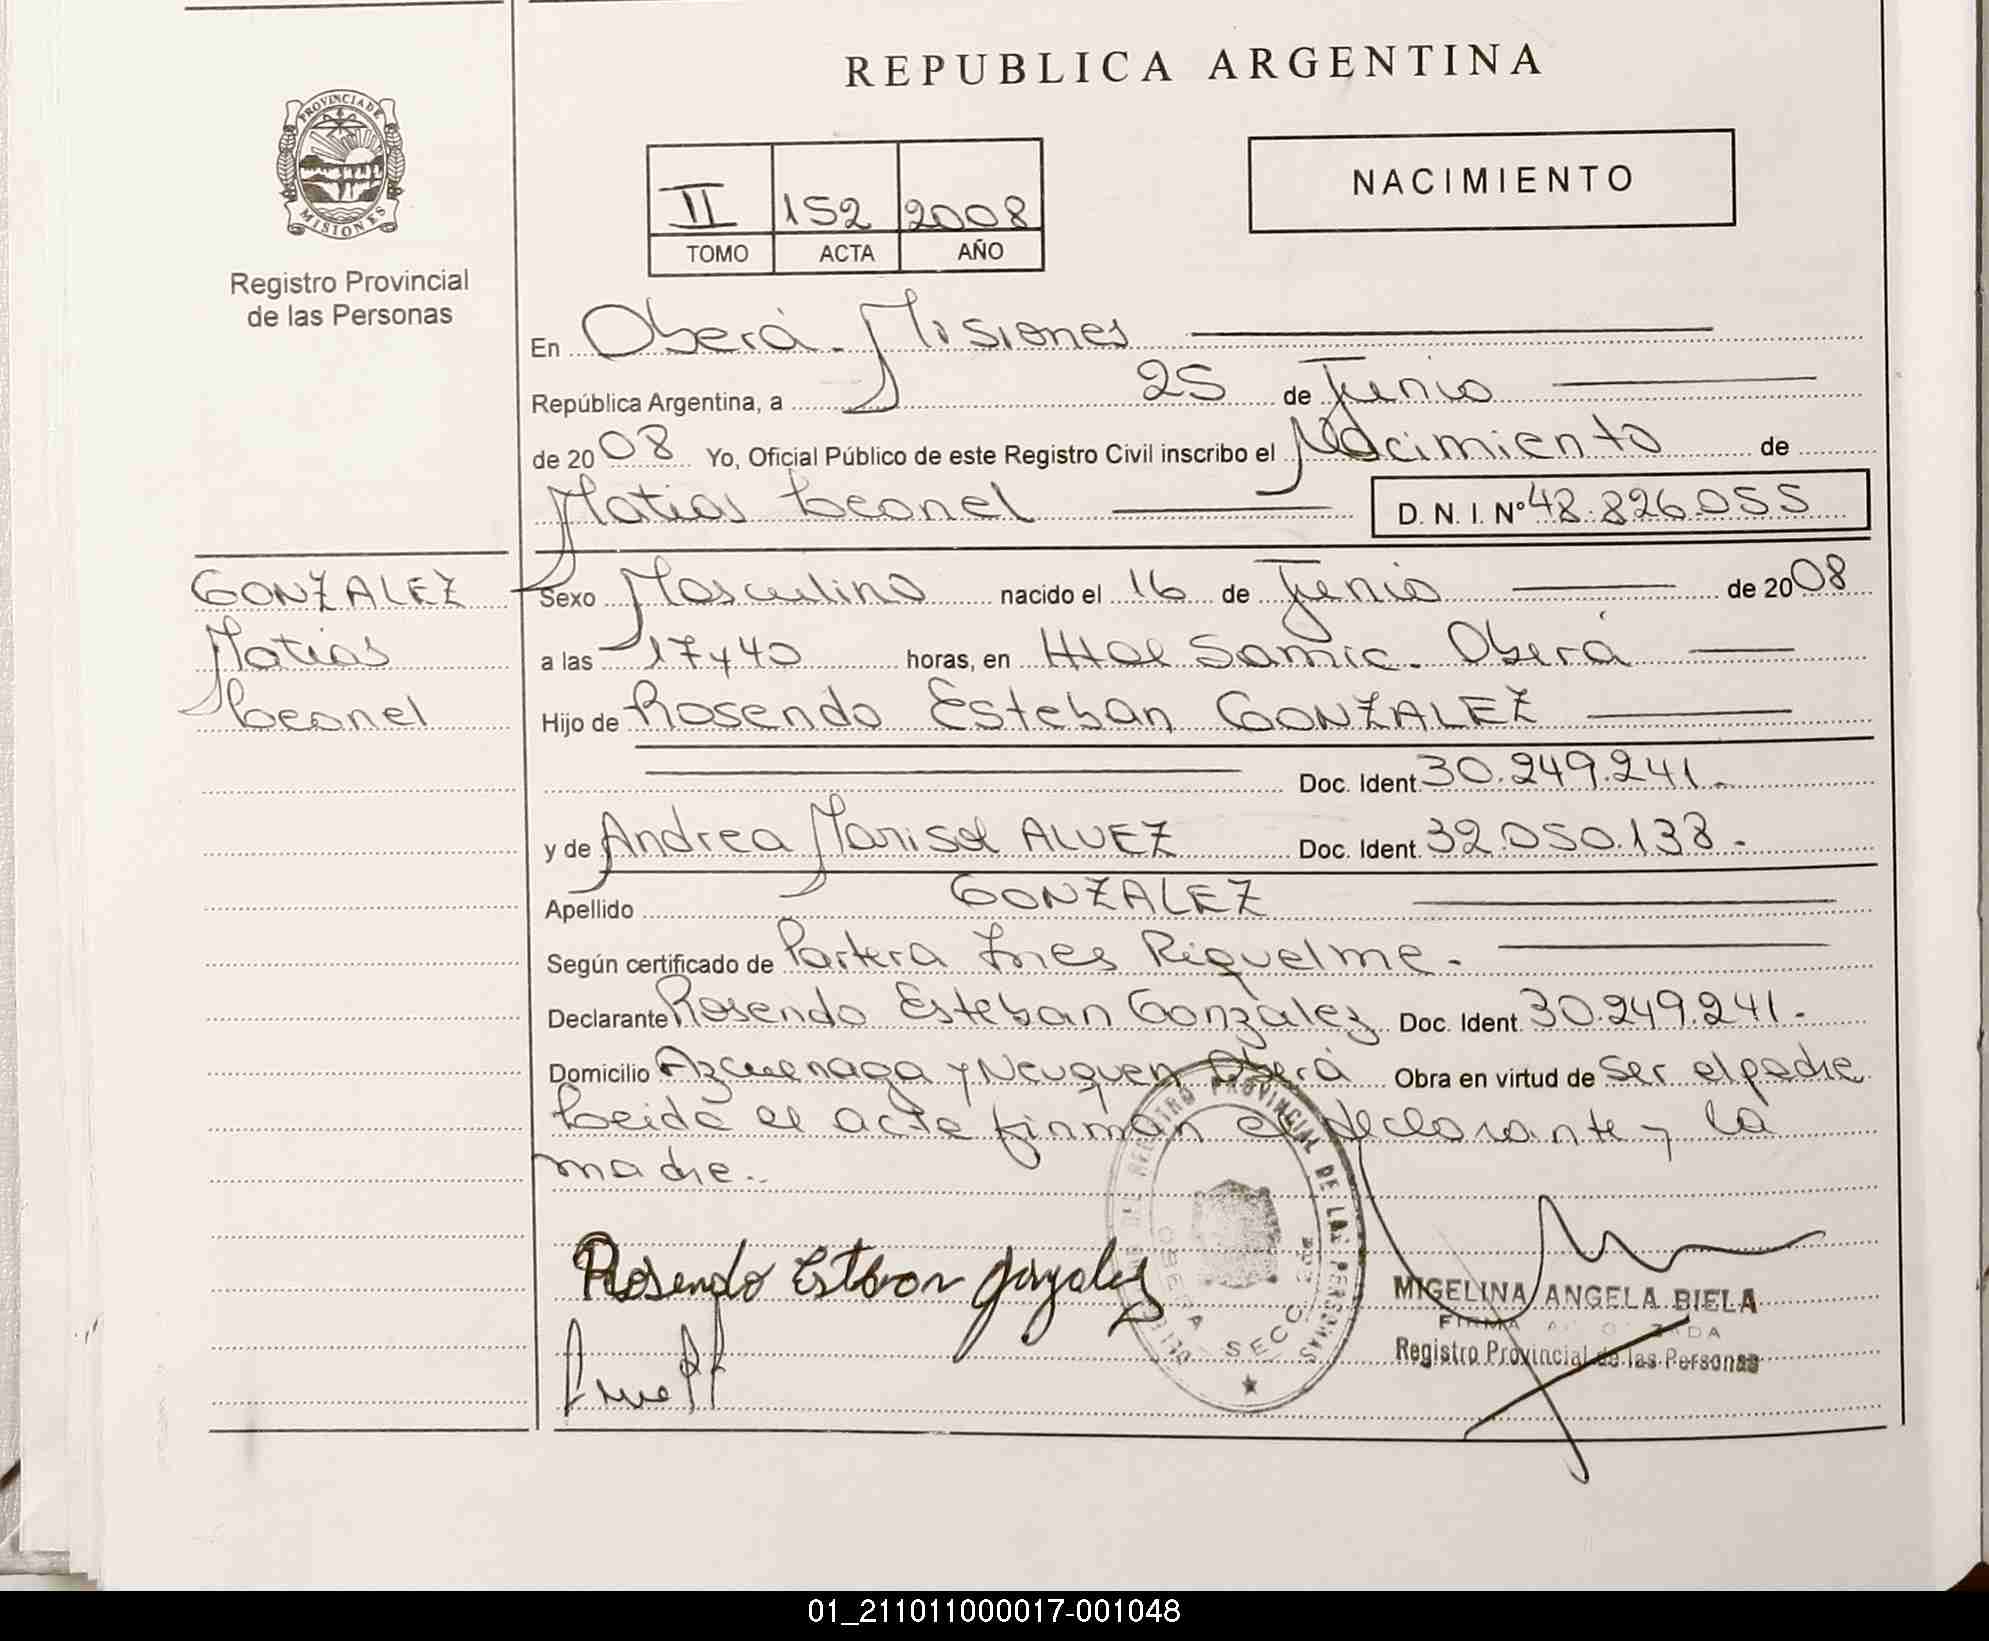 REPUBLICA ARGENTINA
PROVINCIA DE
MISIONES
Registro Provincial
de las Personas
II 152 2008
TOMO ACTA AÑO
NACIMIENTO
En Oberá - Misiones
República Argentina, a 25 de Junio
de 2008 Yo, Oficial Público de este Registro Civil inscribo el Nacimiento de
Matias Leonel D. N. I. Nº 48.826.055
GONZALEZ
Matias
Leonel
Sexo Masculino nacido el 16 de Junio de 2008
a las 17 y 40 horas, en Htal Samic. Oberá
Hijo de Rosendo Esteban GONZALEZ
Doc. Ident. 30.249.241.
y de Andrea Marisol ALVEZ Doc. Ident. 32.050.138.
Apellido GONZALEZ
Según certificado de Partera Ines Riquelme.
Declarante Rosendo Esteban Gonzalez Doc. Ident. 30.249.241.
Domicilio Azcuenaga y Neuquen Oberá Obra en virtud de ser el padre
Leida el acta firman el declarante y la
madre.
REGISTRO PROVINCIAL DE LAS PERSONAS
OBERA SECC
Rosendo Esteban gonzalez
MIGELINA ANGELA BIELA
FIRMA AUTORIZADA
Registro Provincial de las Personas
01_211011000017-001048